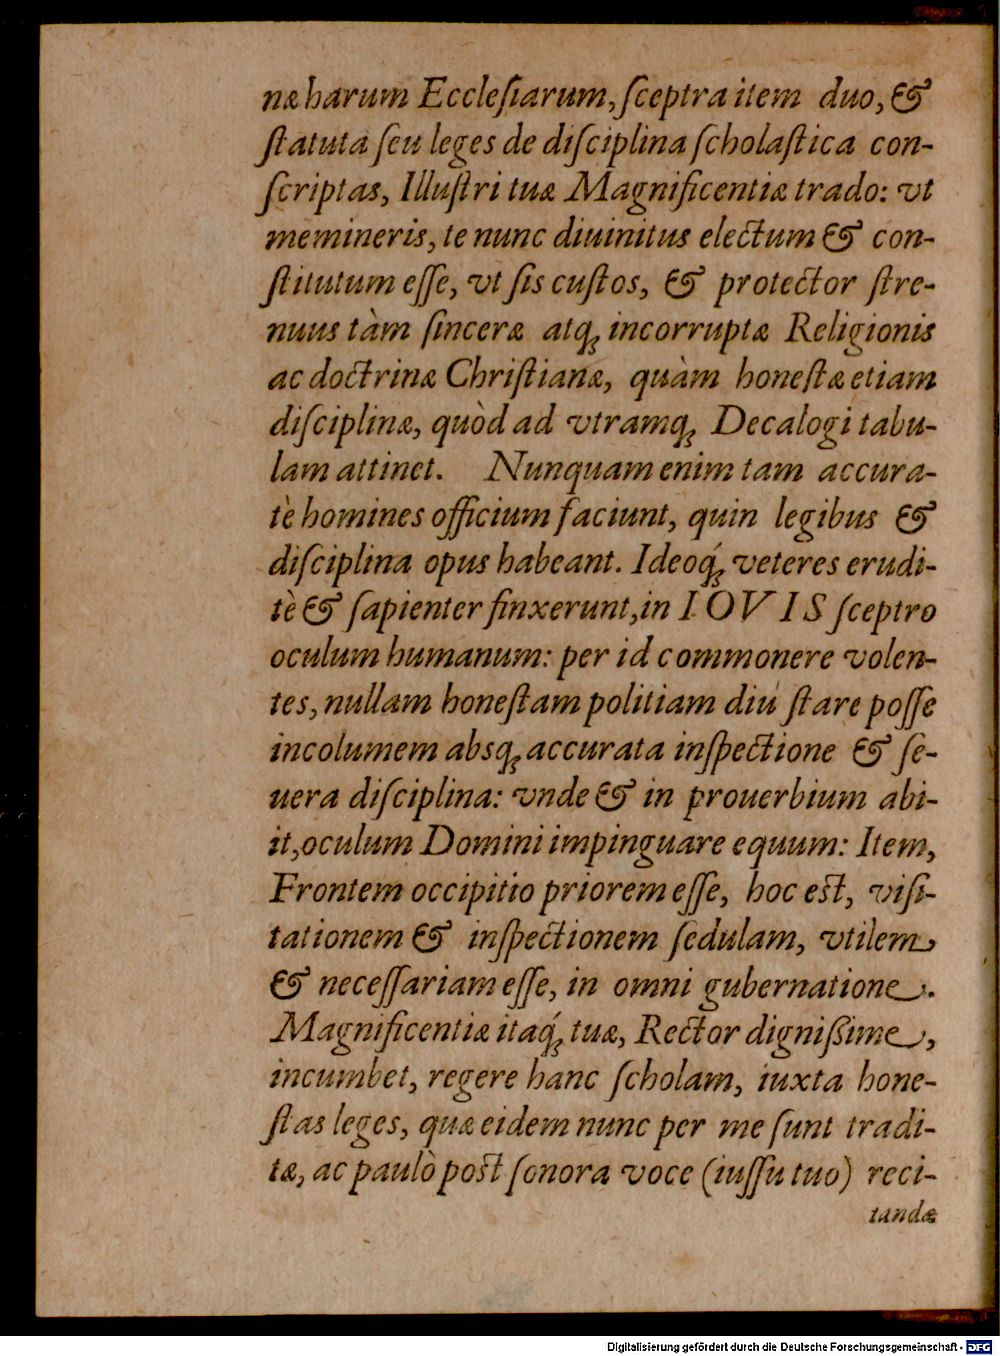 næ harum Eccleſiarum, ſceptra item duo, &
ſtatuta ſeu leges de diſciplina ſcholaſtica con-
ſcriptas, Illuſtri tuæ Magnificentiæ trado: vt
memineris, te nunc diuinitus electum & con-
ſtitutum eſſe, vt ſis cuſtos, & protector ſtre-
nuus tàm ſinceræ atq; incorruptæ Religionis
ac doctrinæ Chriſtianæ, quàm honeſtæ etiam
diſciplinæ, quòd ad vtramq; Decalogi tabu-
lam attinet. Nunquam enim tam accura-
tè homines officium faciunt, quin legibus &
diſciplina opus habeant. Ideoq́; veteres erudi-
tè & ſapienter finxerunt, in IOVIS ſceptro
oculum humanum: per id commonere volen-
tes, nullam honeſtam politiam diu ſtare poſſe
incolumem absq; accurata inſpectione & ſe-
uera diſciplina: vnde & in prouerbium abi-
it, oculum Domini impinguare equum: Item,
Frontem occipitio priorem eſſe, hoc eſt, viſi-
tationem & inſpectionem ſedulam, vtilem
& neceſſariam eſſe, in omni gubernatione.
Magnificentiæ itaq́; tuæ, Rector digniſsime,
incumbet, regere hanc ſcholam, iuxta hone-
ſtas leges, quæ eidem nunc per me ſunt tradi-
tæ, ac paulò poſt ſonora voce (iuſſu tuo) reci-
tandæ
Digitalisierung gefördert durch die Deutsche Forschungsgemeinschaft - DFG